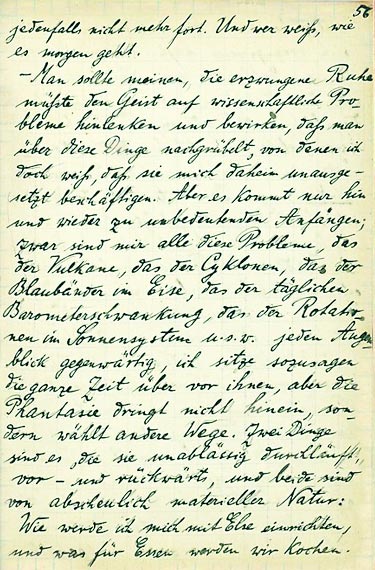 56
jedenfalls nicht mehr fort. Und wer weiß, wie
es morgen geht.
– Man sollte meinen, die erzwungene Ruhe
müßte den Geist auf wissenschaftliche Pro-
bleme hinlenken und bewirken, daß man
über diese Dinge nachgrübelt, von denen ich
doch weiß, daß sie mich daheim unausge-
setzt beschäftigen. Aber es kommt nur hin
und wieder zu unbedeutenden Anfängen;
zwar sind mir alle diese Probleme, das
der Vulkane, das der Cyklonen, das der
Blaubänder im Eise, das der täglichen
Barometerschwankung, das der Rotatio-
nen im Sonnensystem u.s.w. jeden Augen-
blick gegenwärtig, ich sitze sozusagen
die ganze Zeit über vor ihnen, aber die
Phantasie dringt nicht hinein, son-
dern wählt andere Wege. Zwei Dinge
sind es, die sie unablässig durchläuft,
vor- und rückwärts, und beide sind
von abscheulich materieller Natur:
Wie werde ich mich mit Else einrichten,
und was für Essen werden wir kochen.